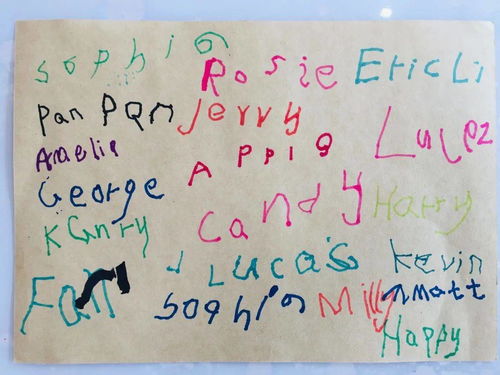 sophia
Rosie
EricLi
Pan Pan
Jerry
Lucez
Amelie
Appie
George
Candy
Harry
KGnry
Lucas
kevin
Fan
sophia
Milly
matt
Happy